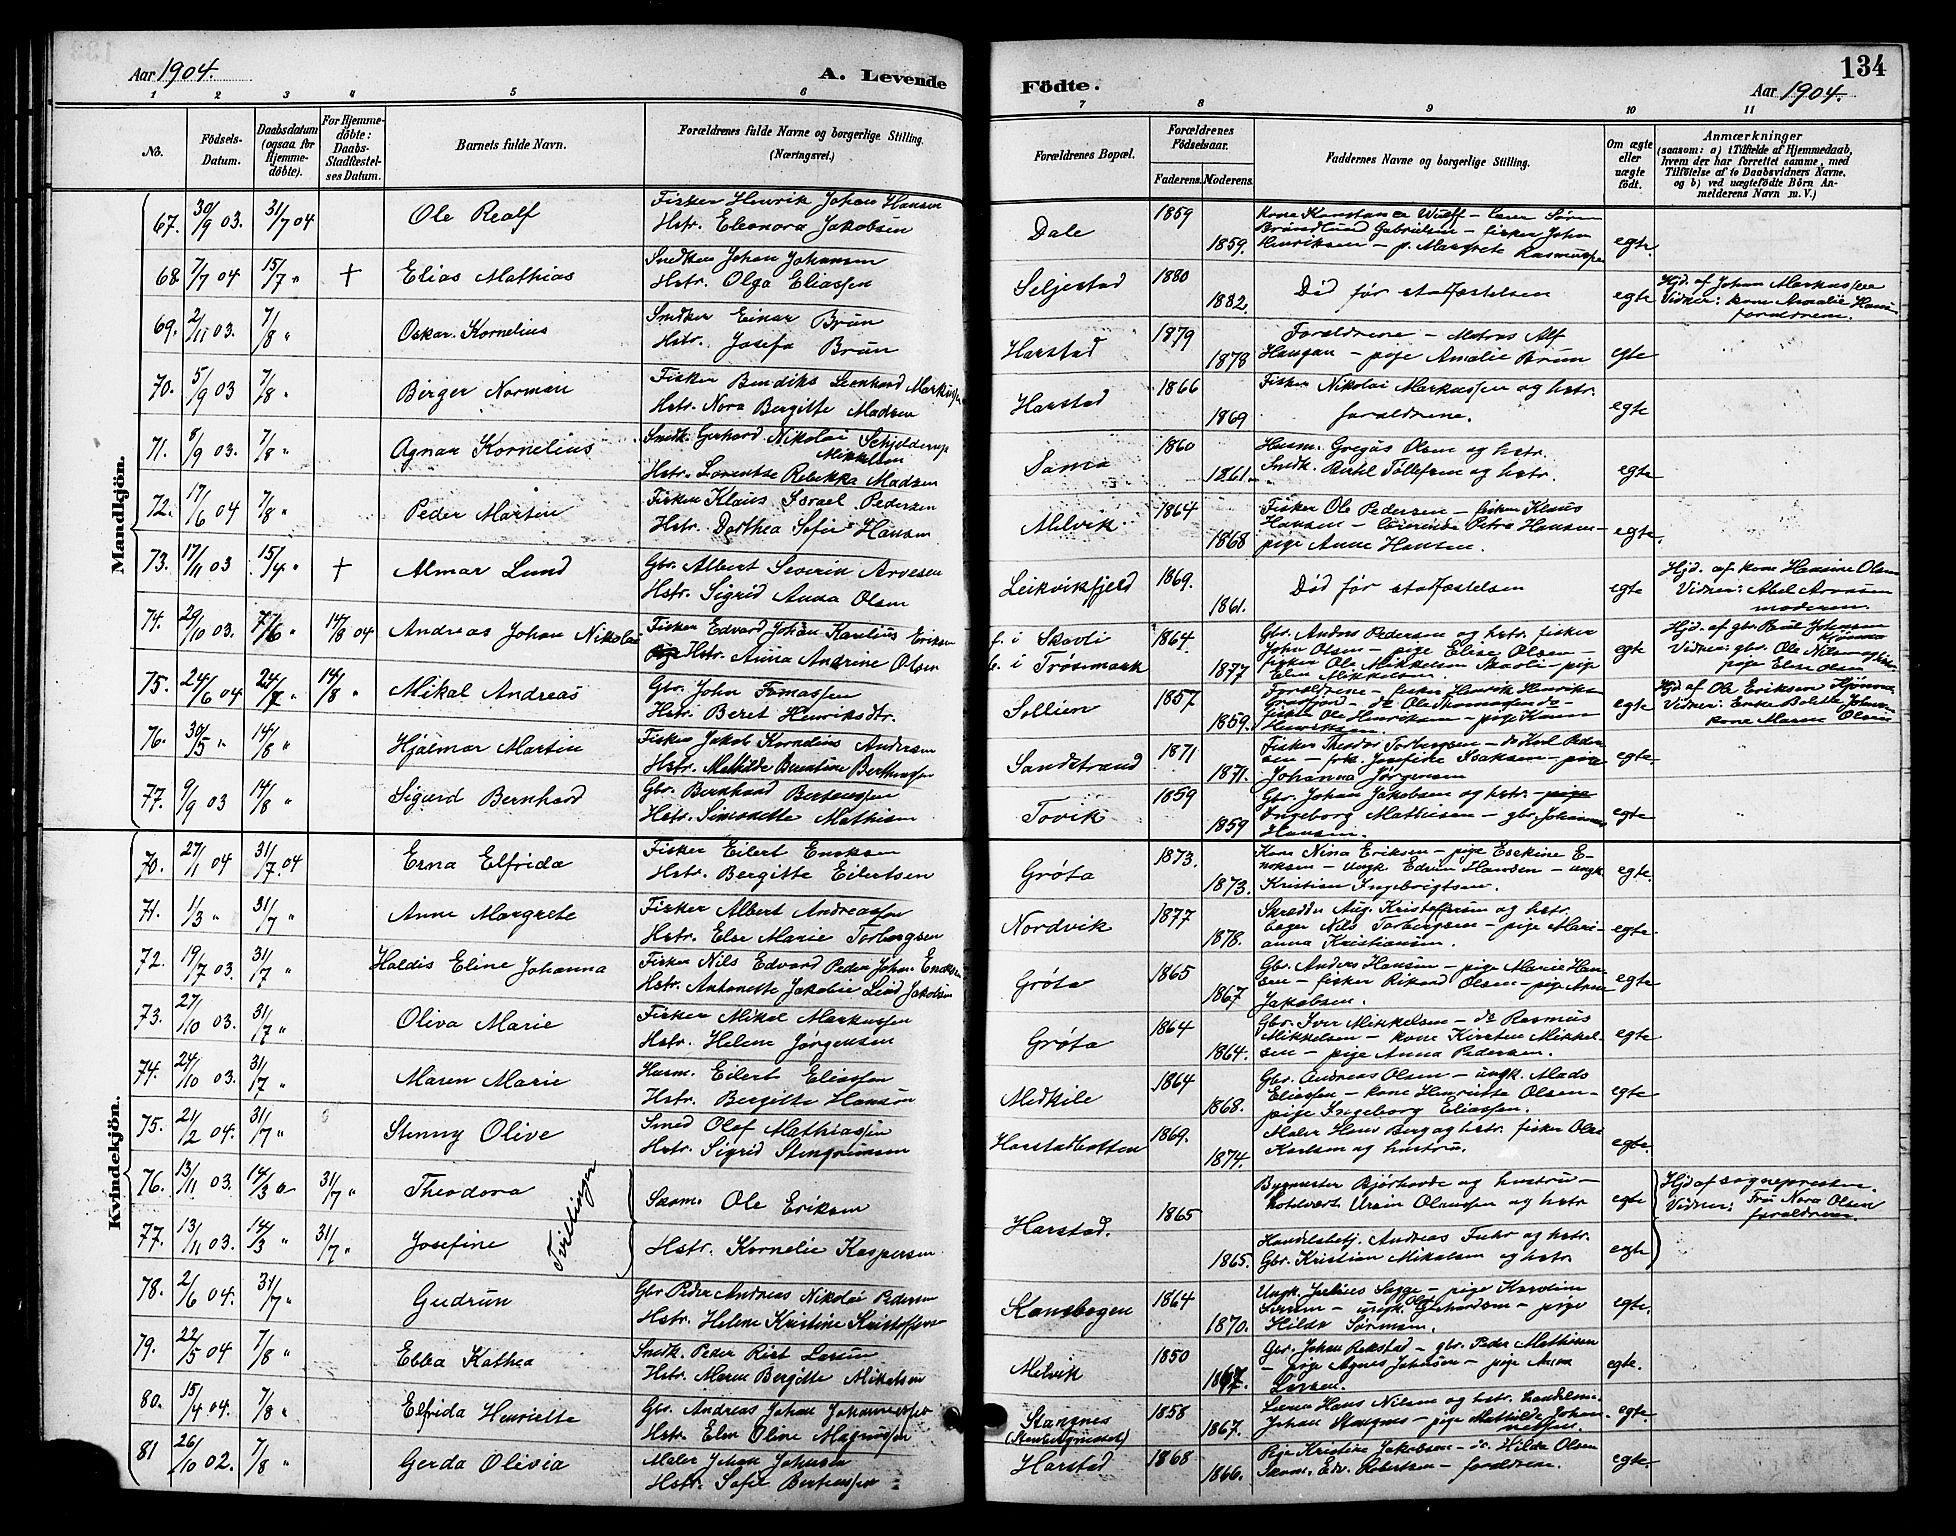 Aar 1904.
A. Levende
1 2 3 4 5 6
No.
Födsels-Datum.
Daabsdatum (ogsaa for Hjemme-døbte).
For Hjemme-døbte: Daabs-Stadfæstel-ses Datum.
Barnets fulde Navn.
Forældrenes fulde Navne og borgerlige Stilling. (Næringsvei.)
Mandkjön.
67. 30/9 03. 31/7 04 Ole Realf
Fisker Henrik Johan Hansen
Hstr. Eleonora Jakobsen
68 7/7 04 15/7 " + Elias Mathias
Snedker Johan Johansen
Hstr. Olga Eliassen
69. 2/11 03. 7/8 " Oskar Kornelius
Snedker Einar Brun
Hstr. Josefa Brun
70. 5/9 03 7/8 " Birger Norman
Fisker Bendiks Leonhard Markussen
Hstr. Nora Bergitte Madsen
71. 8/9 03. 7/8 " Agnar Kornelius
Snedk. Gerhard Nikolai Schjelderup
Mikkelsen
Hstr. Lorentse Rebekka Madsen
72. 17/6 04 7/8 " Peder Martin
Fisker Klaus Israel Pedersen
Hstr. Dorthea Sofie Hansen
73. 17/11 03 15/4 " + Almar Lund
Gbr. Albert Severin Arvesen
Hstr. Sigrid Anna Olsen
74. 29/10 03. 7/6 " 14/8 04 Andreas Johan Nikolai
Fisker Edvard Johan Karelius Eriksen
Hstr. Anna Andrine Olsen
75. 24/6 04 24/7 " 14/8 " Mikal Andreas
Gbr. John Tomassen
Hstr. Beret Henriksdtr.
76. 30/5 " 14/8 " Hjalmar Martin
Fisker Jakob Kornelius Andersen
Hstr. Mathilde Berntine Bertheussen
77. 9/9 03 14/8 " Sigurd Bernhard
Gbr. Bernhard Berteussen
Hstr. Simonette Mathisen
Kvindekjön.
70. 27/1 04 31/7 04 Erna Elfrida
Fisker Eilert Enoksen
Hstr. Bergitte Eilertsen
71. 1/3 " 31/7 " Anne Margrete
Fisker Albert Andreassen
Hstr. Else Marie Torbergsen
72. 19/7 03. 31/7 " Haldis Eline Johanna
Fisker Nils Edvard Peder Johan Enoksen
Hstr. Antonette Jakobine Lind Jakobsen
73. 27/10 03. 31/7 " Oliva Marie
Fisker Mikal Markussen
Hstr. Helene Jørgensen
74. 24/10 03. 31/7 " Maren Marie
Husm. Eilert Eliassen
Hstr. Bergitte Hanson
75. 21/2 04. 31/7 " Stenny Olive
Smed Olaf Mathiassen
Hstr. Sigrid Stengrimsen
76. 13/11 03. 14/3 31/7 " Theodora
Tvillinger
Skom. Ole Eriksen
77. 13/11 03. 14/3 " 31/7 " Josefine
Hstr. Kornelie Kaspersen
78. 2/6 04. 31/7 " Gudrun
Gbr Peder Andreas Nikolai Pedersen
Hstr. Helene Kristine Kristoffersen
79. 22/5 04 7/8 " Ebba Kathea
Snedk. Peder Rist Larsen
Hstr. Maren Bergitte Mikalsen
80. 15/4 04. 7/8 " Elfrida Henriette
Gbr. Andreas Johan Johannessen
Hstr. Elen Oline Magnussen
81 26/10 02. 7/8 " Gerda Olivia
Maler Johan Johnsen
Hstr. Sofie Berteussen
134
Födte.
Aar 1904.
7 8 9 10 11
Forældrenes Bopæl.
Forældrenes Födselsaar.
Faderens. Moderens.
Faddernes Navne og borgerlige Stilling.
Om ægte eller uægte født.
Anmærkninger
(saasom: a) i Tilfælde af Hjemmedaab, hvem der har forrettet samme, med Tilföielse af to Daabsvidners Navne, og b) ved uægtefödte Börn Anmelderens Navn m. V.)
Dale 1859 1859.
Kone Konstance Wulff - lærer Søren
Brøndlund Gabrielsen - fisker John
Henriksen - p. Margrete Rasmussen
egte.
Seljestad 1880 1882.
Død før stadfæstelsen
egte
Hjd. af Johan Markussen
Vidner: kone Amalie Hansen
forældrene.
Harstad 1879 1878
Forældrene - Matros Alf
Haugan - pige Amalie Brun
egte
Harstad 1866 1869
Fisker Nikolai Markussen og hstr.
forældrene.
egte
Sama 1860 1861.
Husm. Gregus Olsen og hstr.
Snedk. Tollefsen og hstr.
egte
Melvik 1864 1868
Fisker Ole Pedersen - fisker Klaus
Hansen - lærerinde Petra Hansen -
pige Anne Hansen.
egte.
Leikvikfjeld 1869. 1861.
Død før stadfæstelsen
egte
Hjd. af kone Hansine Olsen
Vidner: Abel Aronsen
moderen.
f. i Skavli
b. i Trøsemark 1864. 1877
Gbr. Anders Pedersen og hstr. fisker
John Olsen - pige Elise Olsen -
fisker Ole Mikkelsen Skavli - pige
Elen Mikkelsen.
egte
Hjd. af gbr. Paul Johnsen
Kjønna
Vidner: gbr. Ole Nilsen
pige Elise Olsen
Sollien 1857 1859.
Forældrene - fisker Henrik Henriksen
Grasfjord - do Ole Thomassen do -
fisker Ole Henriksen - pige Karen
Henriksen.
egte
Hjd af Ole Eriksen Kjønna
Vidner: Enke Johnsen
kone Maren Olsen
Sandstrand 1871 1871.
Fisker Theodor Torbergsen - do Karl Peder-
sen - frk. Josefine Isaksen - pige
Johanna Jørgensen
egte
Tovik 1859 1859
Gbr. Johan Jakobsen og hstr. - pige
Ingeborg Mathisen - gbr. Johannes
Hansen.
egte
Grøta 1873. 1873.
Kone Nina Eriksen - pige Eserine E-
noksen - ungk. Edvin Hansen - ungk.
Kristian Ingebrigtsen.
egte.
Nordvik 1877 1878.
Skrædder Aug. Kristoffersen og hstr.
bager Nils Torbergsen - pige Mari-
anna Kristiansen.
egte.
Grøta 1865 1867
Gbr. Anders Hansen - pige Marie Han-
sen - fisker Rikard Olsen - pige Anne
Jakobsen.
egte
Grøta 1864 1864.
Gbr. Iver Mikkelsen - do Rasmus
Mikkelsen - kone Kirsten Mikkel-
sen - pige Anna Pedersen.
egte
Medkile 1864 1868.
Gbr. Andreas Olsen - ungk. Mads
Eliassen - kone Henriette Olsen -
pige Ingeborg Eliassen.
egte
Harstadbotten 1869. 1874.
Maler Hans Berg og hstr. fisker Ole
Karlsen og hustru.
egte.
Harstad. 1865 1865.
Bygmester Bjørhovde og hustru -
hotelvert Ursin Olaussen og hstr
egte
Handelsbetj. Andreas Fuhr og hstr.
Gbr. Kristian Mikalsen og hstr.
egte
Hjd af sognepresten.
Vidner: Fru Nora Olsen
forældrene.
Kansbogen 1864 1870.
Ungk. Julius Sagge - pige Karoline
Larsen - ungk. Olaf Gerhardsen - pige
Hilda Sørensen.
egte.
Melvik 1850 1867.
Gbr. Johan Rekstad - gbr. Peder Mathisen
- pige Agnes Johnsen - pige Anna
Larsen.
egte.
Stangnes 1858 1867.
Lærer Hans Nilsen og hstr. handelsm.
Johan Stangnes - pige Mathilde Johan-
nessen.
egte.
Harstad 1868 1866.
Pige Kristine Jakobsen - do. Hilda Olsen
Skom. Edv. Robertsen - forældrene.
egte.